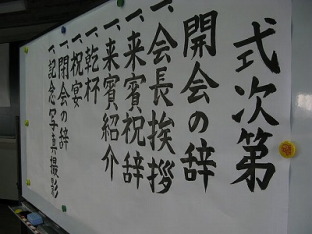 式次第
一、開会の辞
一、会長挨拶
一、来賓祝辞
一、来賓紹介
一、乾杯
一、祝宴
一、閉会の辞
一、記念写真撮影